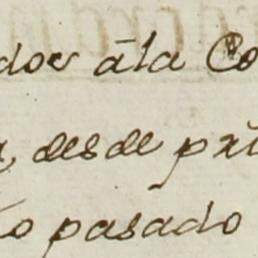 dos āla Co
, desde pr
o pasado